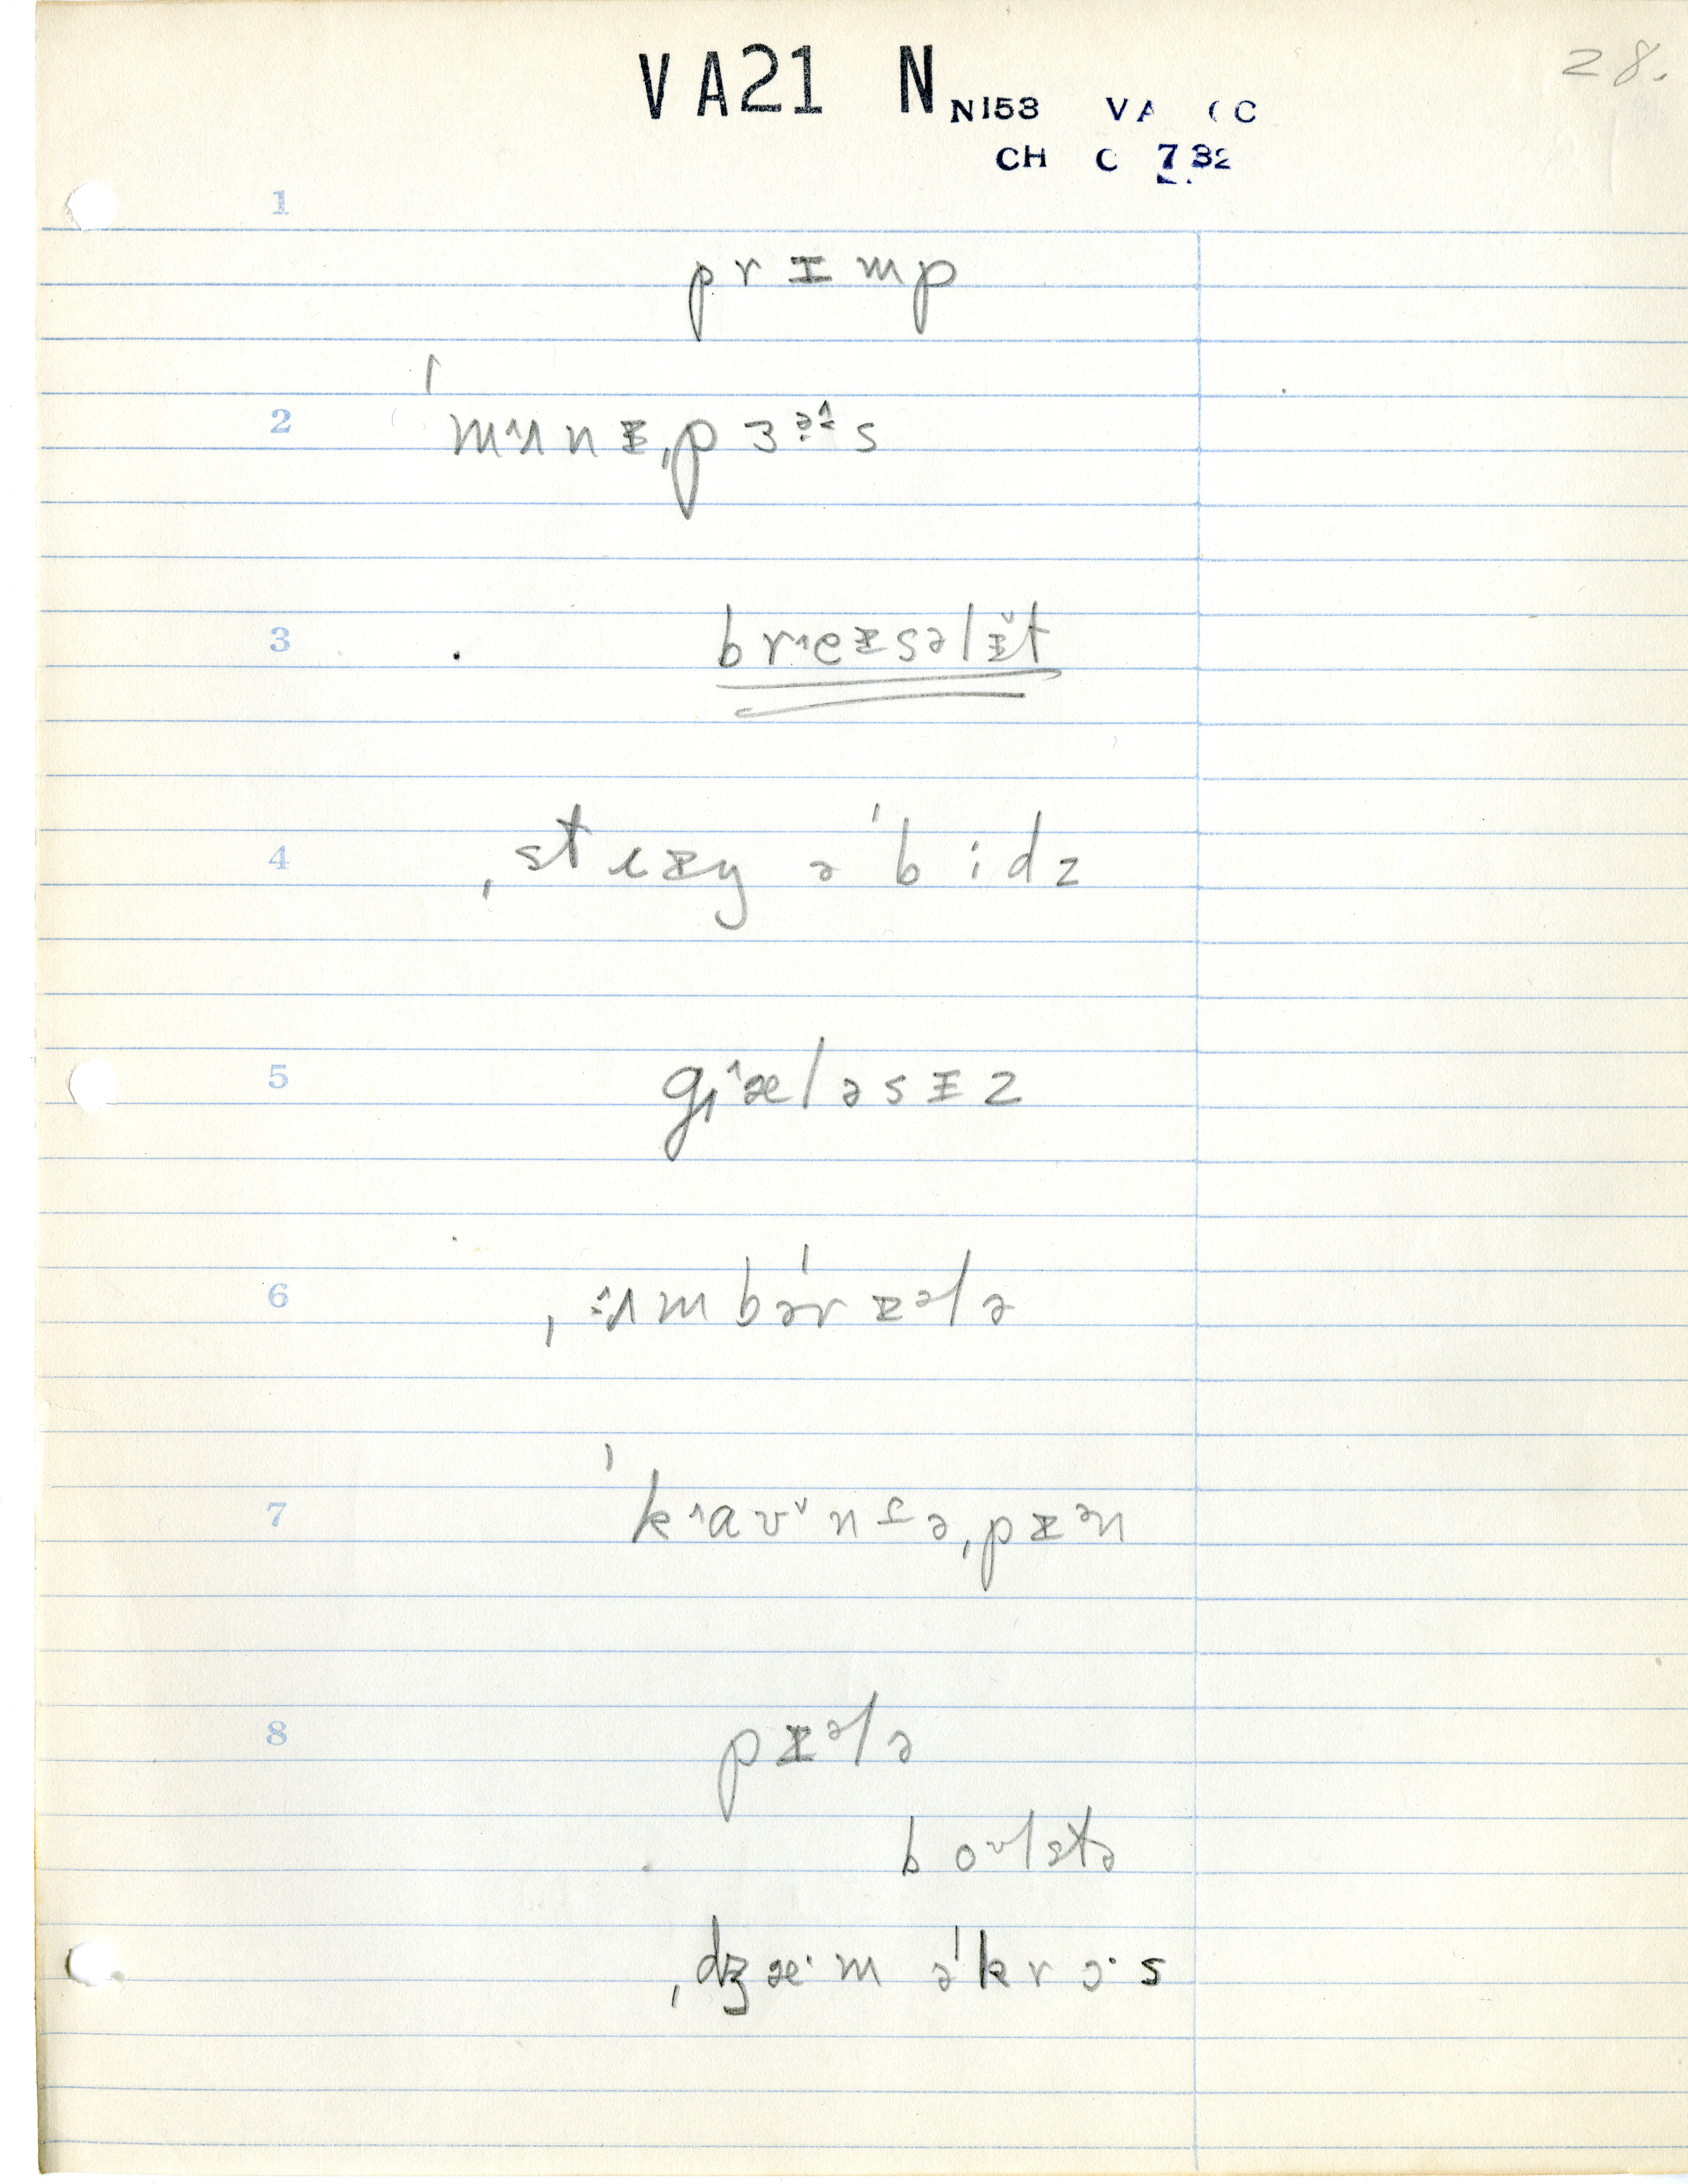 VA21 N N153 VA C
28.
CH C 732
1
prɪmp
2 ˈmʌnɪˌpɜəs
3 breɪsəlɪt
4 ˌstrɪŋ əˈbidz
5 gæləsɪz
6 ˌʌmbəˈrɪələ
7 ˈkaʊnəˌpɪən
8 pɪələ
boʊlstə
ˌdʒæ·m əˈkrɔ·s